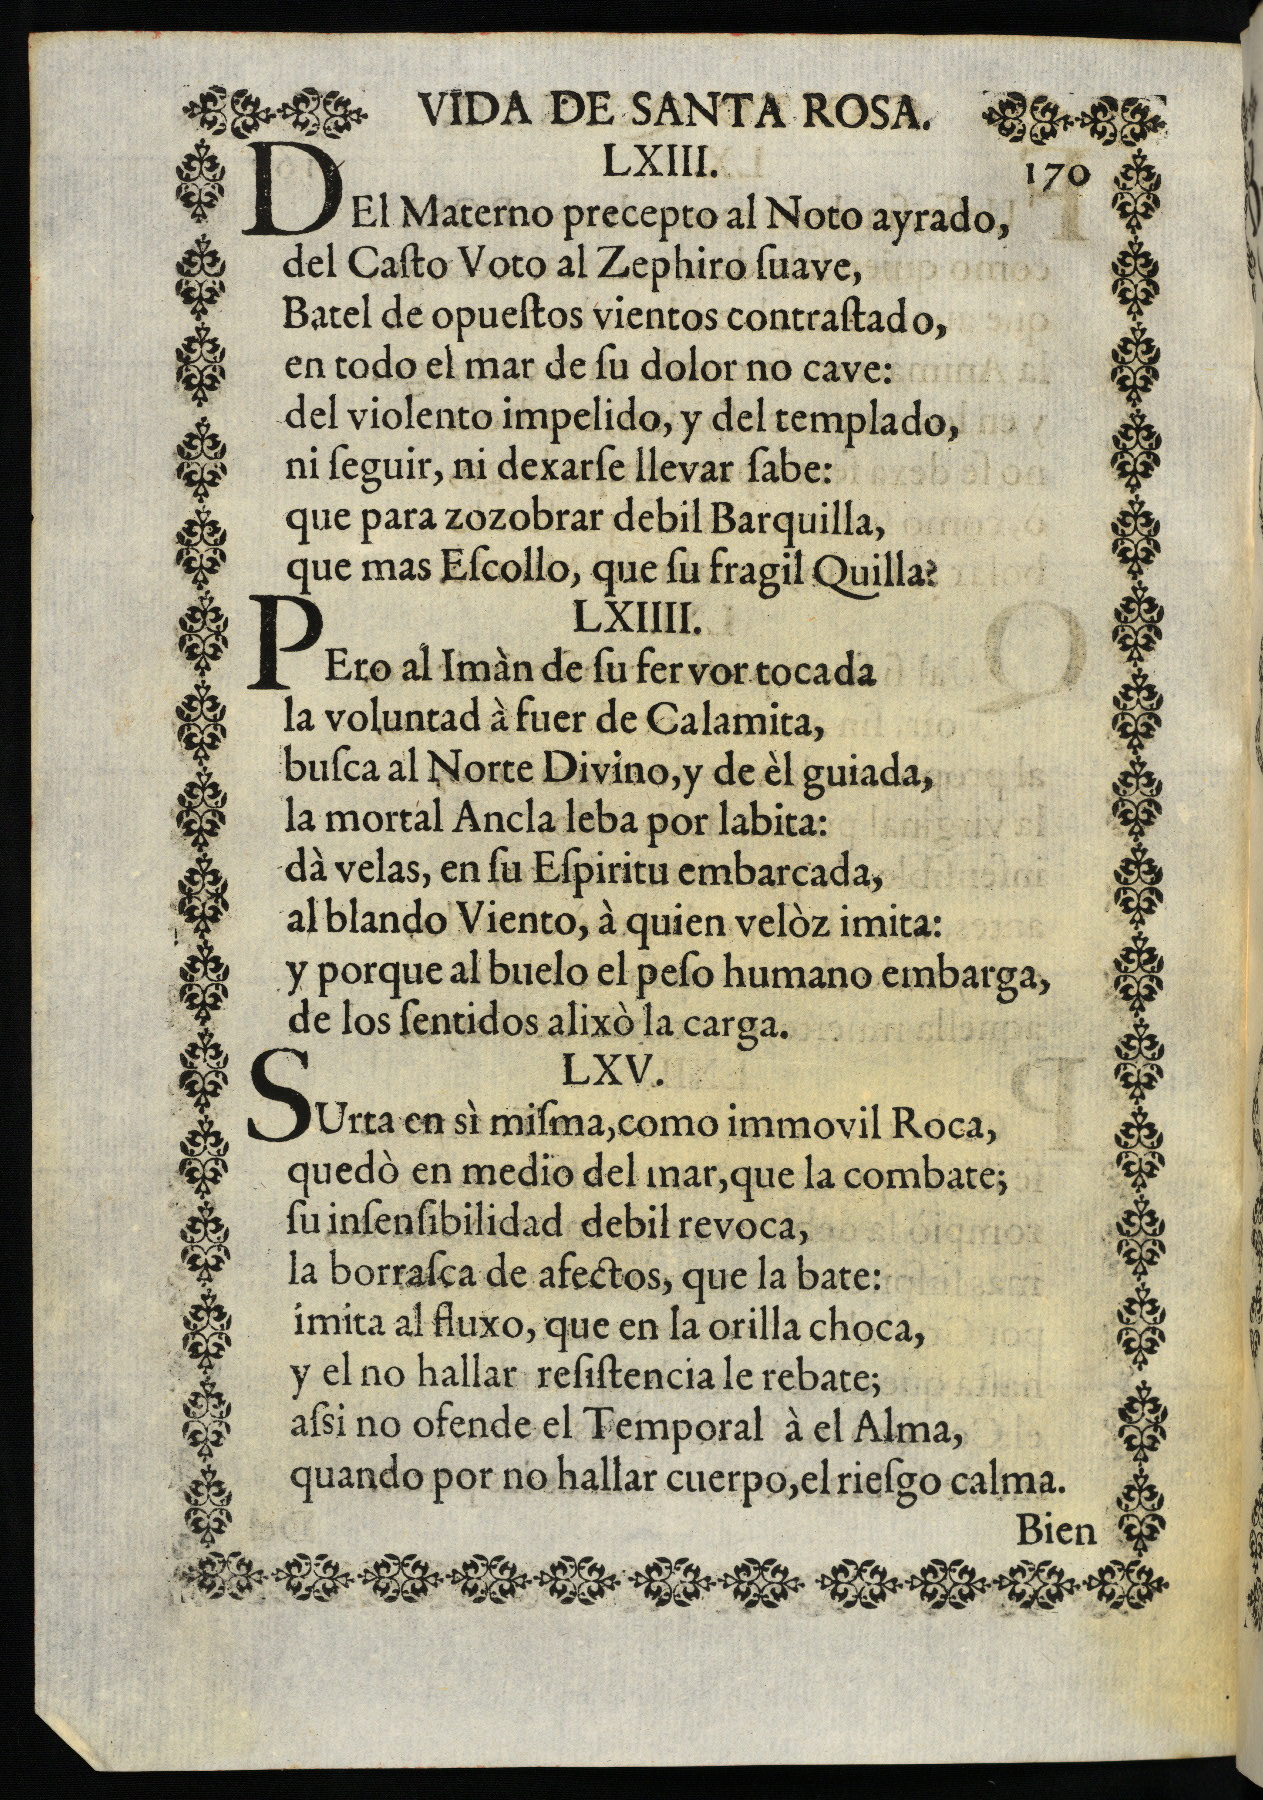 VIDA DE SANTA ROSA.
LXIII.
170
DEl Materno precepto al Noto ayrado,
del Caſto Voto al Zephiro ſuave,
Batel de opueſtos vientos contraſtado,
en todo el mar de ſu dolor no cave:
del violento impelido, y del templado,
ni ſeguir, ni dexarſe llevar ſabe:
que para zozobrar debil Barquilla,
que mas Eſcollo, que ſu fragil Quilla?
LXIIII.
PEro al Imàn de ſu fervor tocada
la voluntad à fuer de Calamita,
buſca al Norte Divino, y de èl guiada,
la mortal Ancla leba por labita:
dà velas, en ſu Eſpiritu embarcada,
al blando Viento, à quien velòz imita:
y porque al buelo el peſo humano embarga,
de los ſentidos alixò la carga.
LXV.
SUrta en sì miſma, como immovil Roca,
quedò en medio del mar, que la combate;
ſu inſenſibilidad debil revoca,
la borraſca de afectos, que la bate:
imita al fluxo, que en la orilla choca,
y el no hallar reſiſtencia le rebate;
aſsi no ofende el Temporal à el Alma,
quando por no hallar cuerpo, el rieſgo calma.
Bien